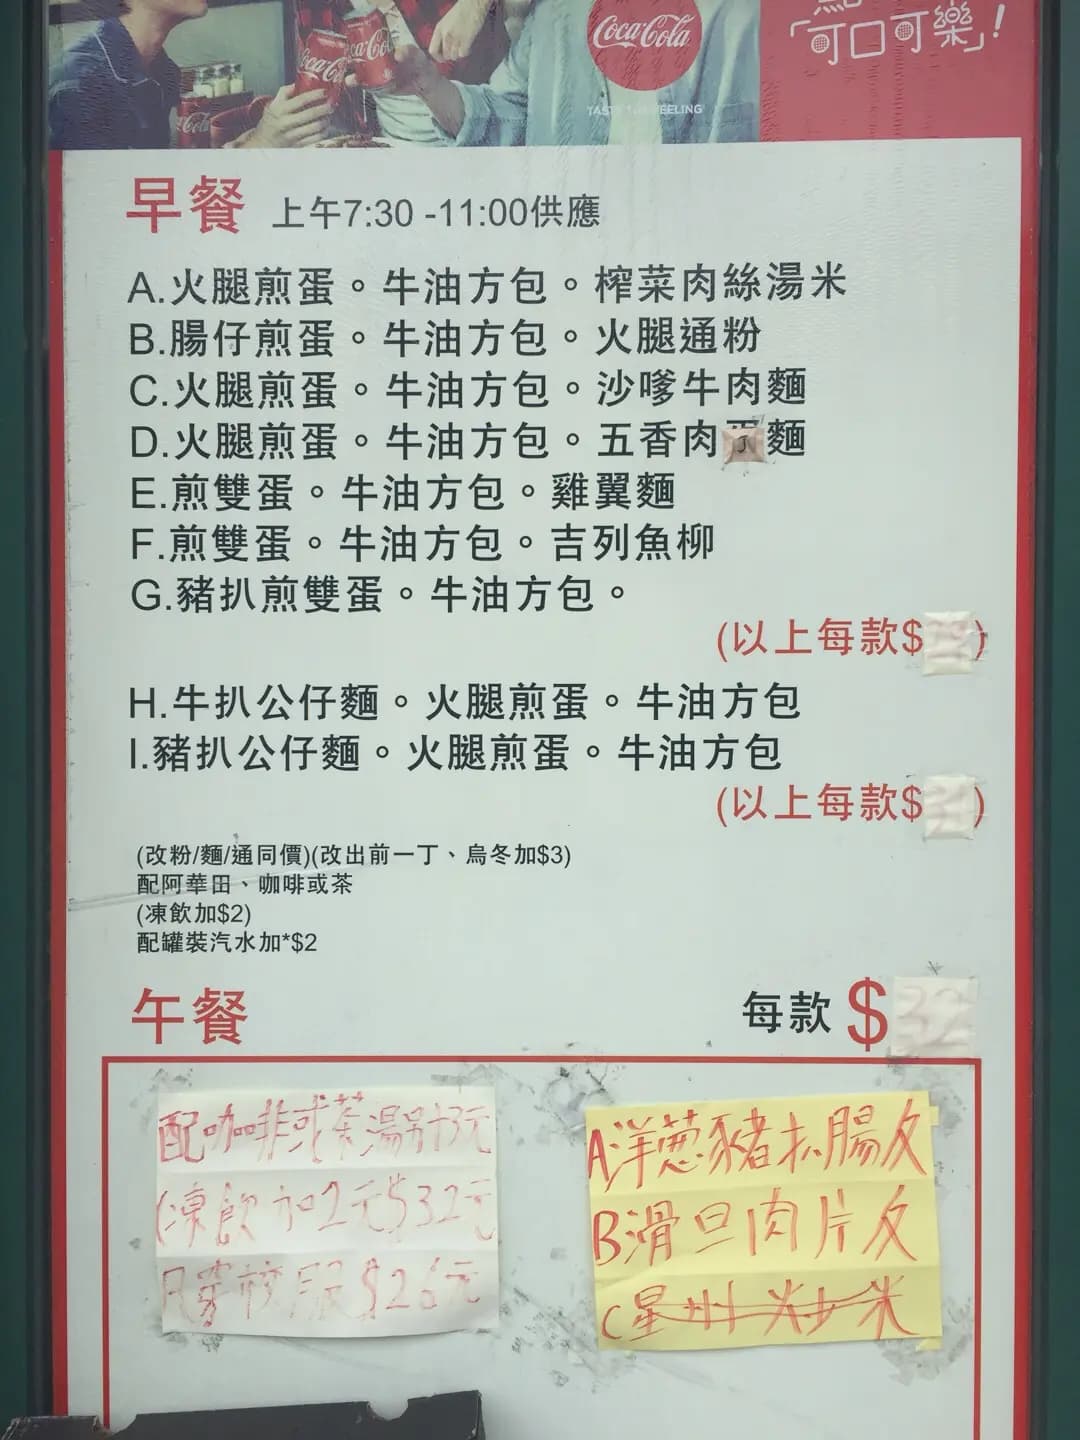 Coca-Cola
TASTE THE FEELING
「可口可樂」!
早餐 上午7:30 -11:00供應
A.火腿煎蛋。牛油方包。榨菜肉絲湯米
B.腸仔煎蛋。牛油方包。火腿通粉
C.火腿煎蛋。牛油方包。沙嗲牛肉麵
D.火腿煎蛋。牛油方包。五香肉丁麵
E.煎雙蛋。牛油方包。雞翼麵
F.煎雙蛋。牛油方包。吉列魚柳
G.豬扒煎雙蛋。牛油方包。
(以上每款$ )
H.牛扒公仔麵。火腿煎蛋。牛油方包
I.豬扒公仔麵。火腿煎蛋。牛油方包
(以上每款$ )
(改粉/麵/通同價)(改出前一丁、烏冬加$3)
配阿華田、咖啡或茶
(凍飲加$2)
配罐裝汽水加*$2
午餐 每款 $32
配咖啡或茶湯另加3元
(凍飲加2元$32元
只穿校服$26元
A洋葱豬扒腸反
B滑旦肉片反
C星州炒米